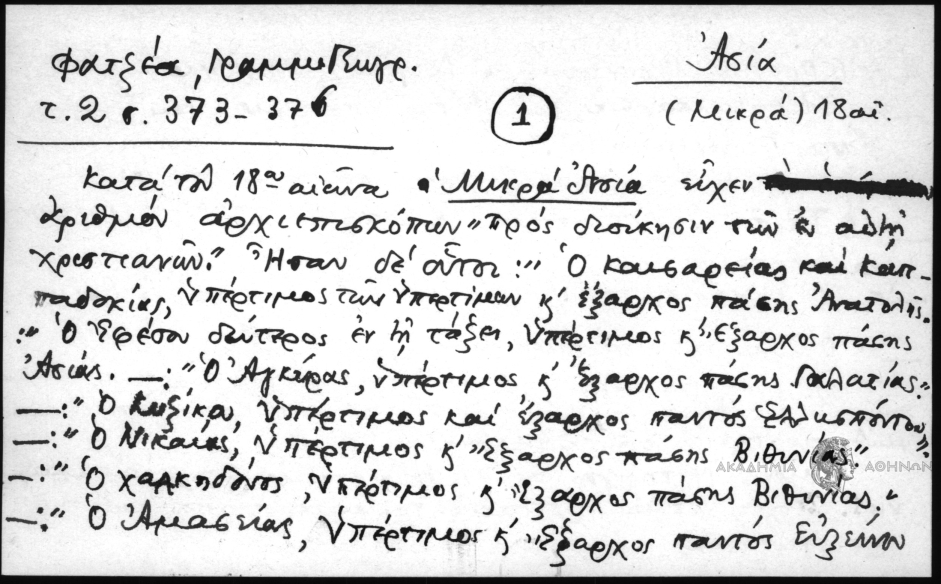 Φατζέα, Γραμμ. Γεωγρ.
τ. 2 σ. 373-376
1
Ἀσία
(Μικρά) 18 αἰ.
Κατά τόν 18ον αἰῶνα ἡ Μικρά Ἀσία εἶχεν
ἀριθμόν ἀρχιεπισκόπων "πρός διοίκησιν τῶν ἐν αὐτῇ
χριστιανῶν." Ἦσαν δέ οὗτοι: "Ὁ Καισαρείας καί Καπ-
παδοκίας, ὑπέρτιμος τῶν ὑπερτίμων κ' ἔξαρχος πάσης Ἀνατολῆς.
:" Ὁ Ἐφέσου δεύτερος ἐν τῇ τάξει, ὑπέρτιμος κ' ἔξαρχος πάσης
Ἀσίας. —:" Ὁ Ἀγκύρας, ὑπέρτιμος κ' ἔξαρχος πάσης Γαλατίας."
—:" Ὁ Κυζίκου, ὑπέρτιμος καί ἔξαρχος παντός Ἑλλησπόντου".
—:" Ὁ Νικαίας, ὑπέρτιμος κ' ἔξαρχος πάσης Βιθυνίας."
—:" Ὁ Χαλκηδόνος, ὑπέρτιμος κ' ἔξαρχος πάσης Βιθυνίας."
—:" Ὁ Ἀμασείας, ὑπέρτιμος κ' ἔξαρχος παντός Εὐξείνου
ΑΚΑΔΗΜΙΑ ΑΘΗΝΩΝ